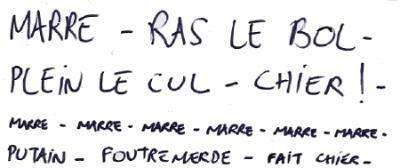 MARRE - RAS LE BOL -
PLEIN LE CUL - CHIER ! -
MARRE - MARRE - MARRE - MARRE - MARRE - MARRE -
PUTAIN - FOUTREMERDE - FAIT CHIER -